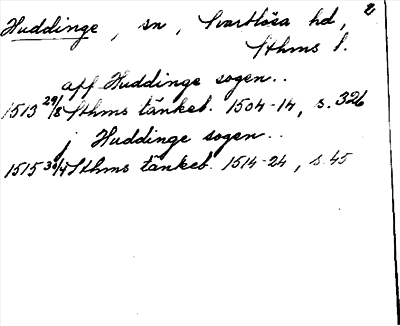 Huddinge, sn, Svartlösa hd, 2
Sthms l.
aff Huddinge sogen..
1513 29/8 Sthms tänkeb. 1504-14, s. 326
j Huddinge sogen..
1515 30/4 Sthms tänkeb. 1514-24, s. 45